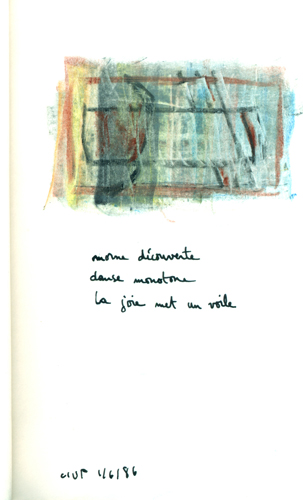 morne découverte
danse monotone
la joie met un voile
1/6/86